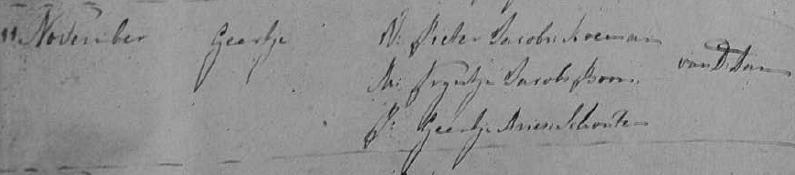 11 November Geertje V: Pieter Jacobs Koeman van D: Dam
M: Tryntje Jacobs Boon
P: Geertje Aries Schouten